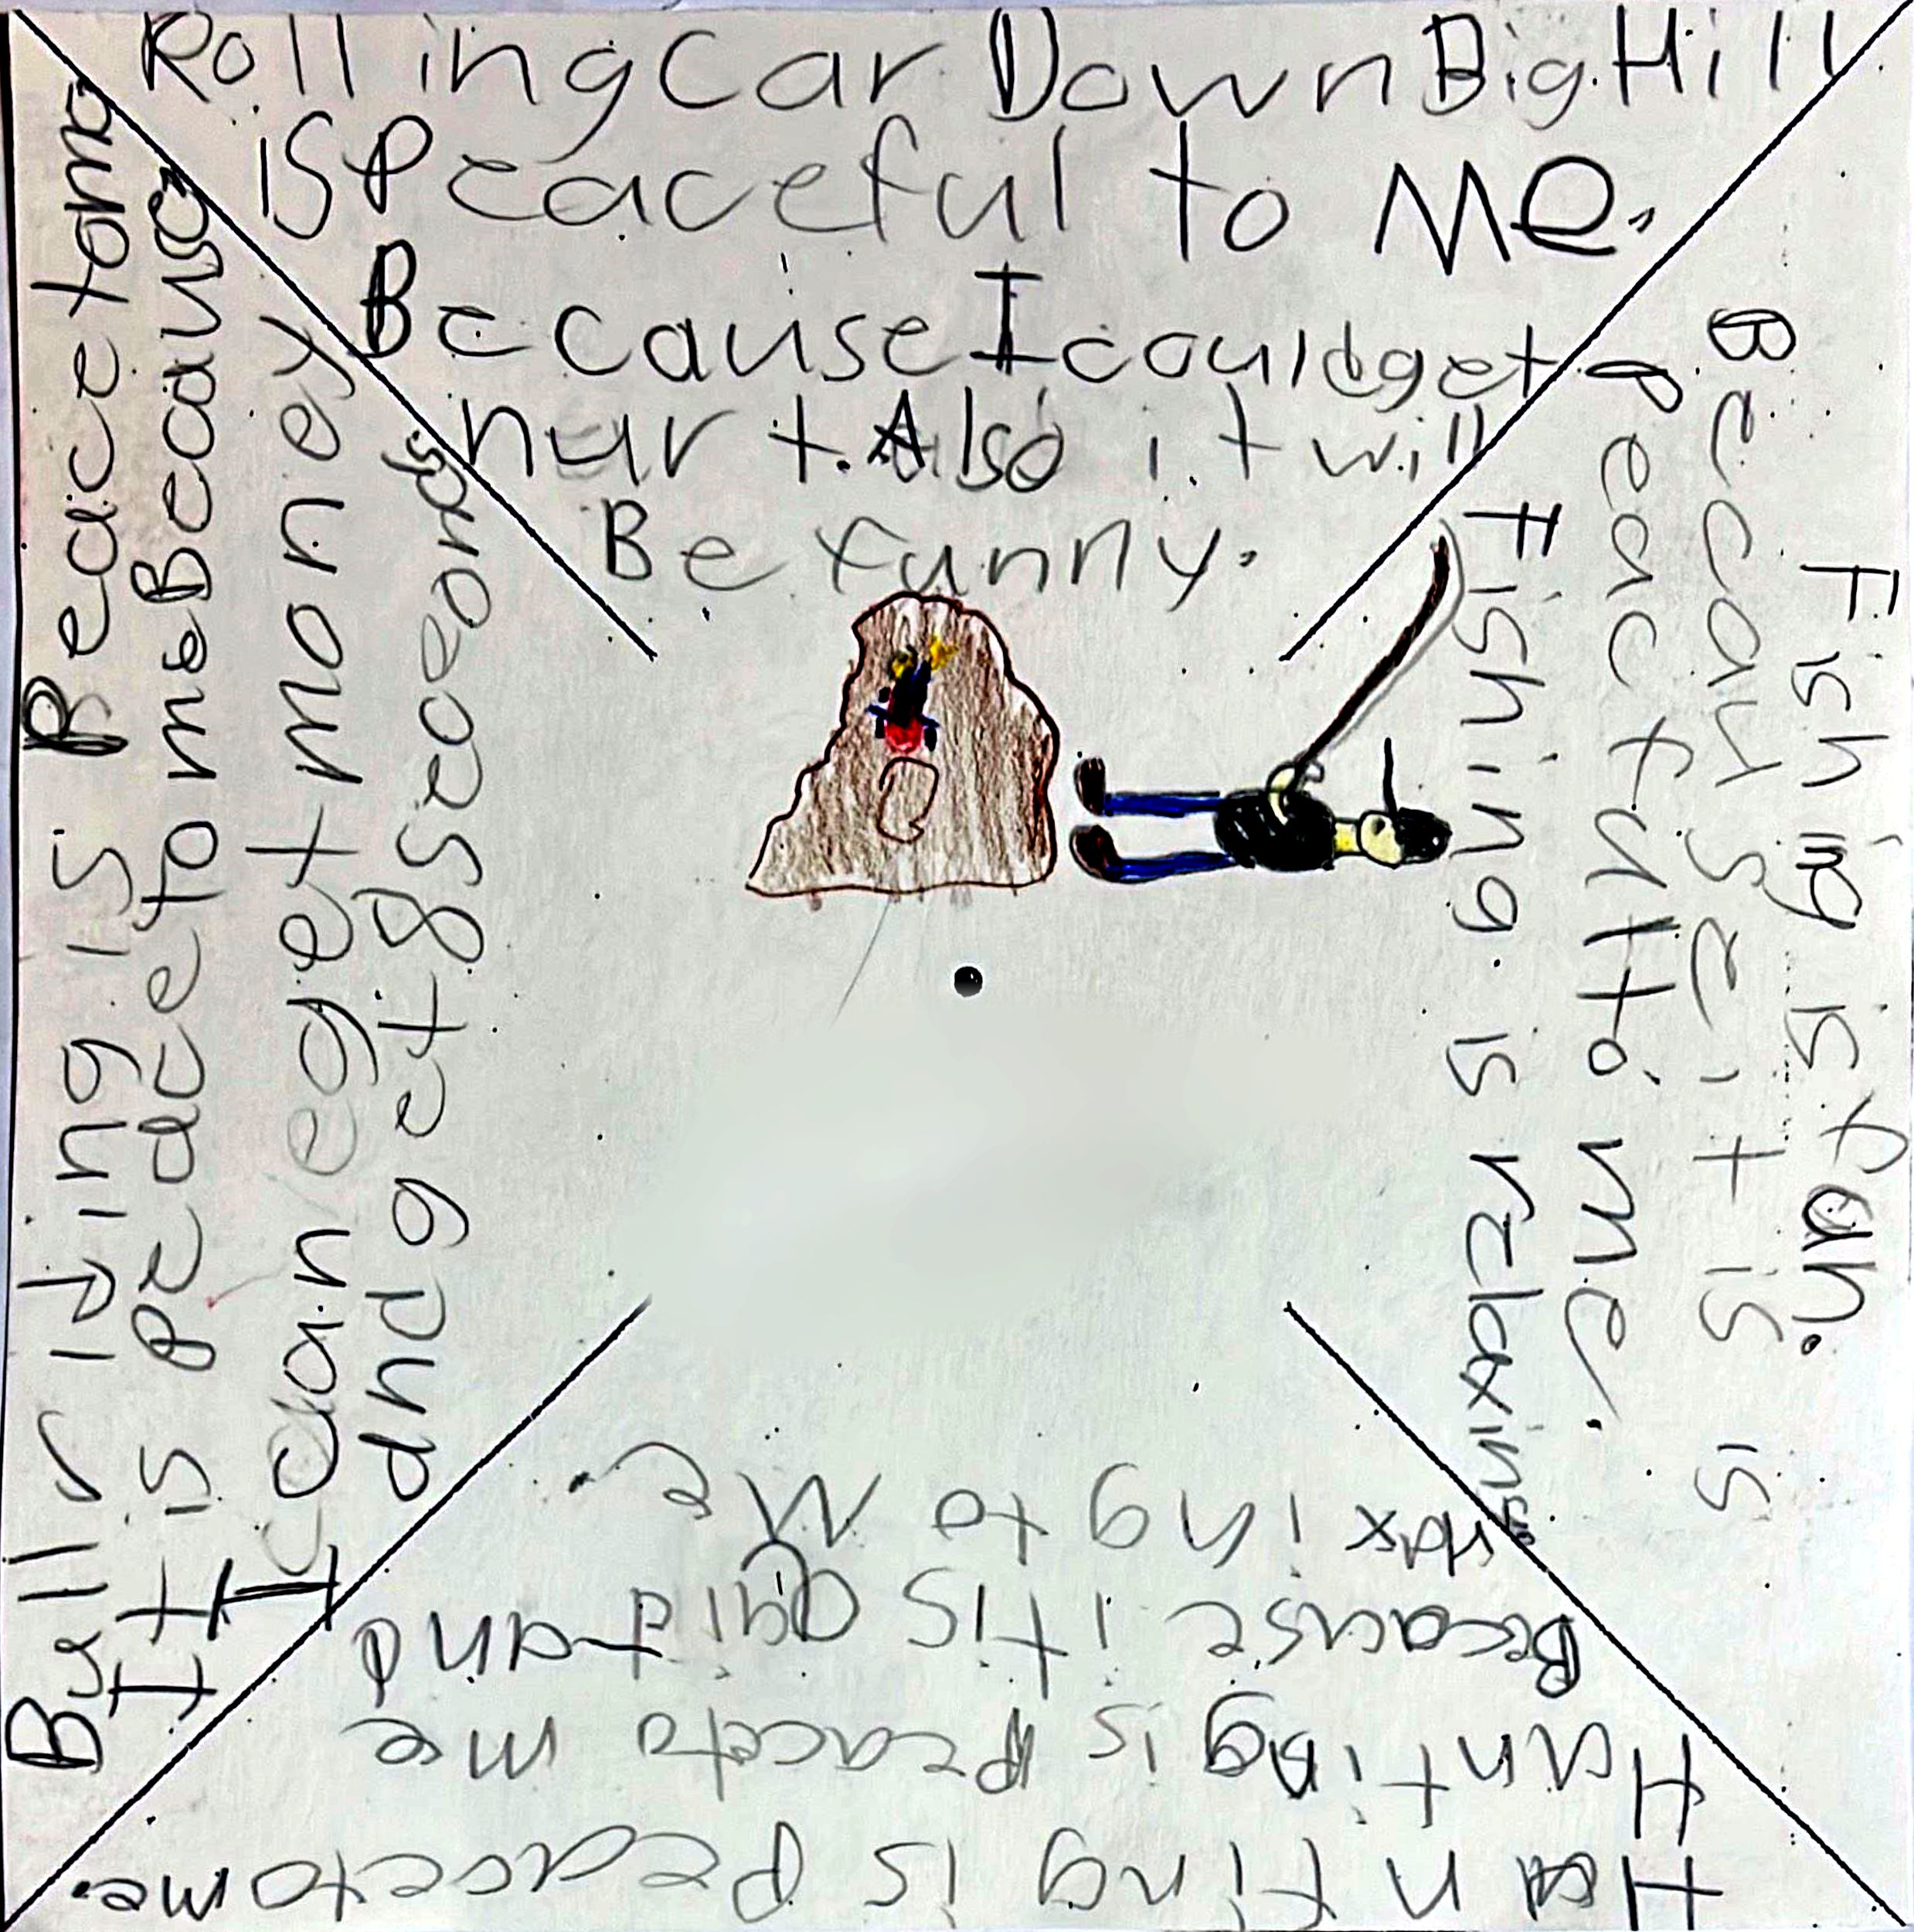 Rolling Car Down Big Hill
is Peaceful to Me.
Because I could get
hurt. Also it will
Be funny.
Fishing is fun.
Because it is is
Peacful to me.
Fishing. is relaxing
Hunting is Peace to me.
Hunting is Peace to me
Because it is quiit and
relaxing to Me.
Bull riding is Peace to me
It is peace to me Because
I can get money
and get 8 seconds